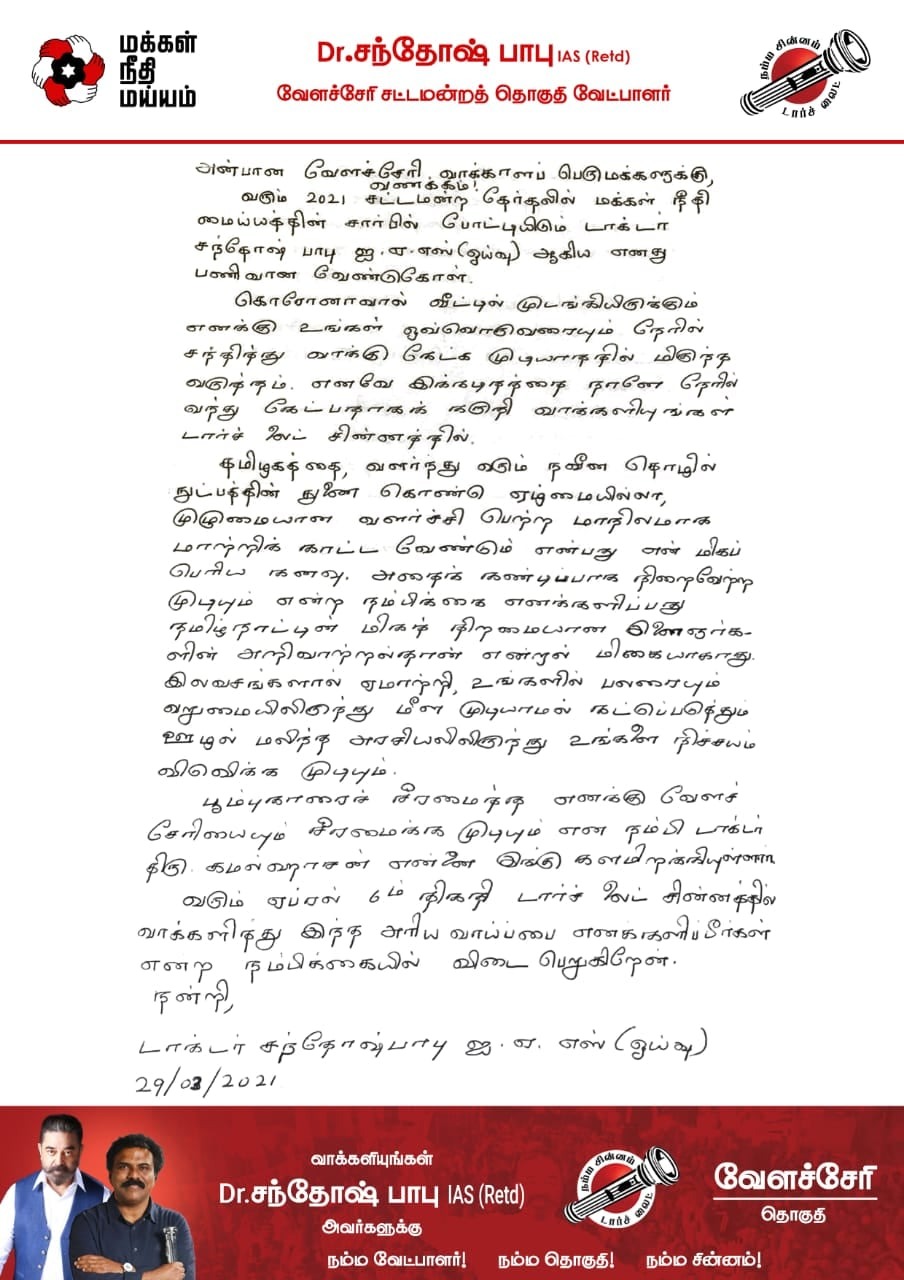 மக்கள்
நீதி
மய்யம்
Dr.சந்தோஷ் பாபு IAS (Retd)
வேளச்சேரி சட்டமன்றத் தொகுதி வேட்பாளர்
நம்ம சின்னம்
டார்ச் லைட்
அன்பான வேளச்சேரி வாக்காளப் பெருமக்களுக்கு,
வணக்கம்!
வரும் 2021 சட்டமன்ற தேர்தலில் மக்கள் நீதி
மைய்யத்தின் சார்பில் போட்டியிடும் டாக்டர்
சந்தோஷ் பாபு ஐ.ஏ.எஸ் (ஓய்வு) ஆகிய எனது
பணிவான வேண்டுகோள்.
கொரோனாவால் வீட்டில் முடங்கியிருக்கும்
எனக்கு உங்கள் ஒவ்வொருவரையும் நேரில்
சந்தித்து வாக்கு கேட்க முடியாததில் மிகுந்த
வருத்தம். எனவே இக்கடிதத்தை நானே நேரில்
வந்து கேட்பதாகக் கருதி வாக்களியுங்கள்
டார்ச் லைட் சின்னத்தில்.
தமிழகத்தை, வளர்ந்து வரும் நவீன தொழில்
நுட்பத்தின் துணை கொண்டு ஏழ்மையில்லா,
முழுமையான வளர்ச்சி பெற்ற மாநிலமாக
மாற்றிக் காட்ட வேண்டும் என்பது என் மிகப்
பெரிய கனவு. அதைக் கண்டிப்பாக நிறைவேற்ற
முடியும் என்ற நம்பிக்கை எனக்களிப்பது
தமிழ்நாட்டின் மிகத் திறமையான இளைஞர்க-
ளின் அறிவாற்றல்தான் என்றால் மிகையாகாது.
இலவசங்களால் ஏமாற்றி, உங்களில் பலரையும்
வறுமையிலிருந்து மீள முடியாமல் கட்டுப்படுத்தும்
ஊழல் மலிந்த அரசியலிலிருந்து உங்களை நிச்சயம்
விடுவிக்க முடியும்.
பூம்புகாரைச் சீரமைத்த எனக்கு வேளச்
சேரியையும் சீரமைக்க முடியும் என நம்பி டாக்டர்
திரு. கமல்ஹாசன் என்னை இங்கு களமிறக்கியுள்ளார்
வரும் ஏப்ரல் 6ம் திகதி டார்ச் லைட் சின்னத்தில்
வாக்களித்து இந்த அரிய வாய்ப்பை எனக்களிப்பீர்கள்
என்ற நம்பிக்கையில் விடை பெறுகிறேன்.
நன்றி,
டாக்டர் சந்தோஷ்பாபு ஐ.ஏ.எஸ் (ஓய்வு)
29/03/2021
வாக்களியுங்கள்
Dr.சந்தோஷ் பாபு IAS (Retd)
அவர்களுக்கு
நம்ம சின்னம்
டார்ச் லைட்
வேளச்சேரி
தொகுதி
நம்ம வேட்பாளர்! நம்ம தொகுதி! நம்ம சின்னம்!